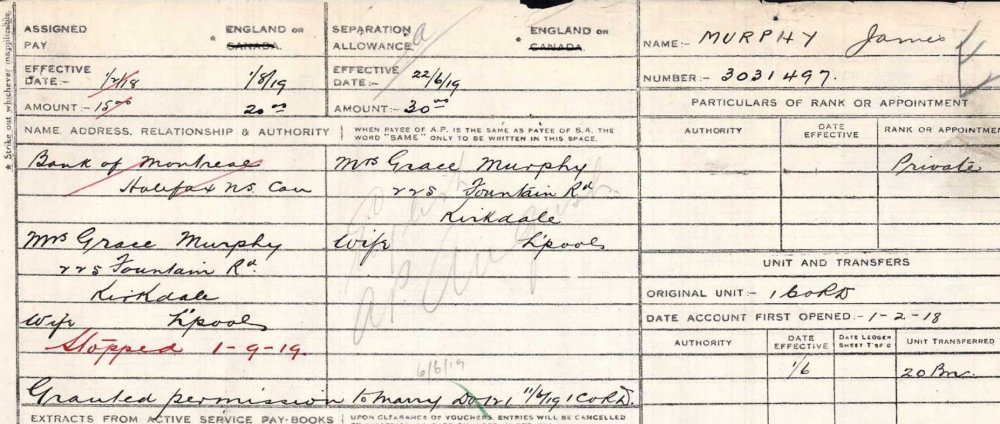 * Strike out whichever inapplicable.
ASSIGNED PAY * ENGLAND OR CANADA.
EFFECTIVE DATE:- 1/2/18 1/8/19
AMOUNT:- 15.00 20.00
NAME, ADDRESS, RELATIONSHIP & AUTHORITY
Bank of Montreal
Halifax NS Can
Mrs Grace Murphy
225 Fountain Rd.
Kirkdale
Wife L'pool
Stopped 1-9-19.
SEPARATION ALLOWANCE * ENGLAND OR CANADA.
EFFECTIVE DATE:- 22/6/19
AMOUNT:- 30.00
WHEN PAYEE OF A.P. IS THE SAME AS PAYEE OF S.A. THE
WORD "SAME" ONLY TO BE WRITTEN IN THIS SPACE.
Mrs Grace Murphy
225 Fountain Rd
Kirkdale
Wife L'pool
6/6/19
Granted permission to marry DO 121 11/6/19 1 CORD.
EXTRACTS FROM ACTIVE SERVICE PAY-BOOKS
UPON CLEARANCE OF VOUCHERS, ENTRIES WILL BE CANCELLED
NAME:- MURPHY James
NUMBER:- 3031497.
PARTICULARS OF RANK OR APPOINTMENT
AUTHORITY DATE EFFECTIVE RANK OR APPOINTME
Private
UNIT AND TRANSFERS
ORIGINAL UNIT:- 1 CORD
DATE ACCOUNT FIRST OPENED:- 1-2-18
AUTHORITY DATE EFFECTIVE DATE LEDGER SHEET T'SF'D UNIT TRANSFERRED
1/6 20 Bn.